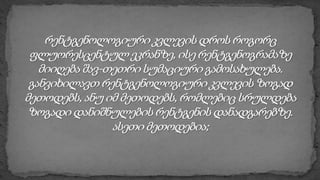 რენტგენოლოგიური კვლევის დროს როგორც
ფლუორესცენტულ ეკრანზე, ისე რენტგენოგრამაზე
მიიღება შავ-თეთრი სუმაციური გამოსახულება.
განვიხილავთ რენტგენოლოგიური კვლევის ზოგად
მეთოდებს, ანუ იმ მეთოდებს, რომლებიც სრულდება
ზოგადი დანიშნულების რენტგენის დანადგარებზე.
ასეთი მეთოდებია;